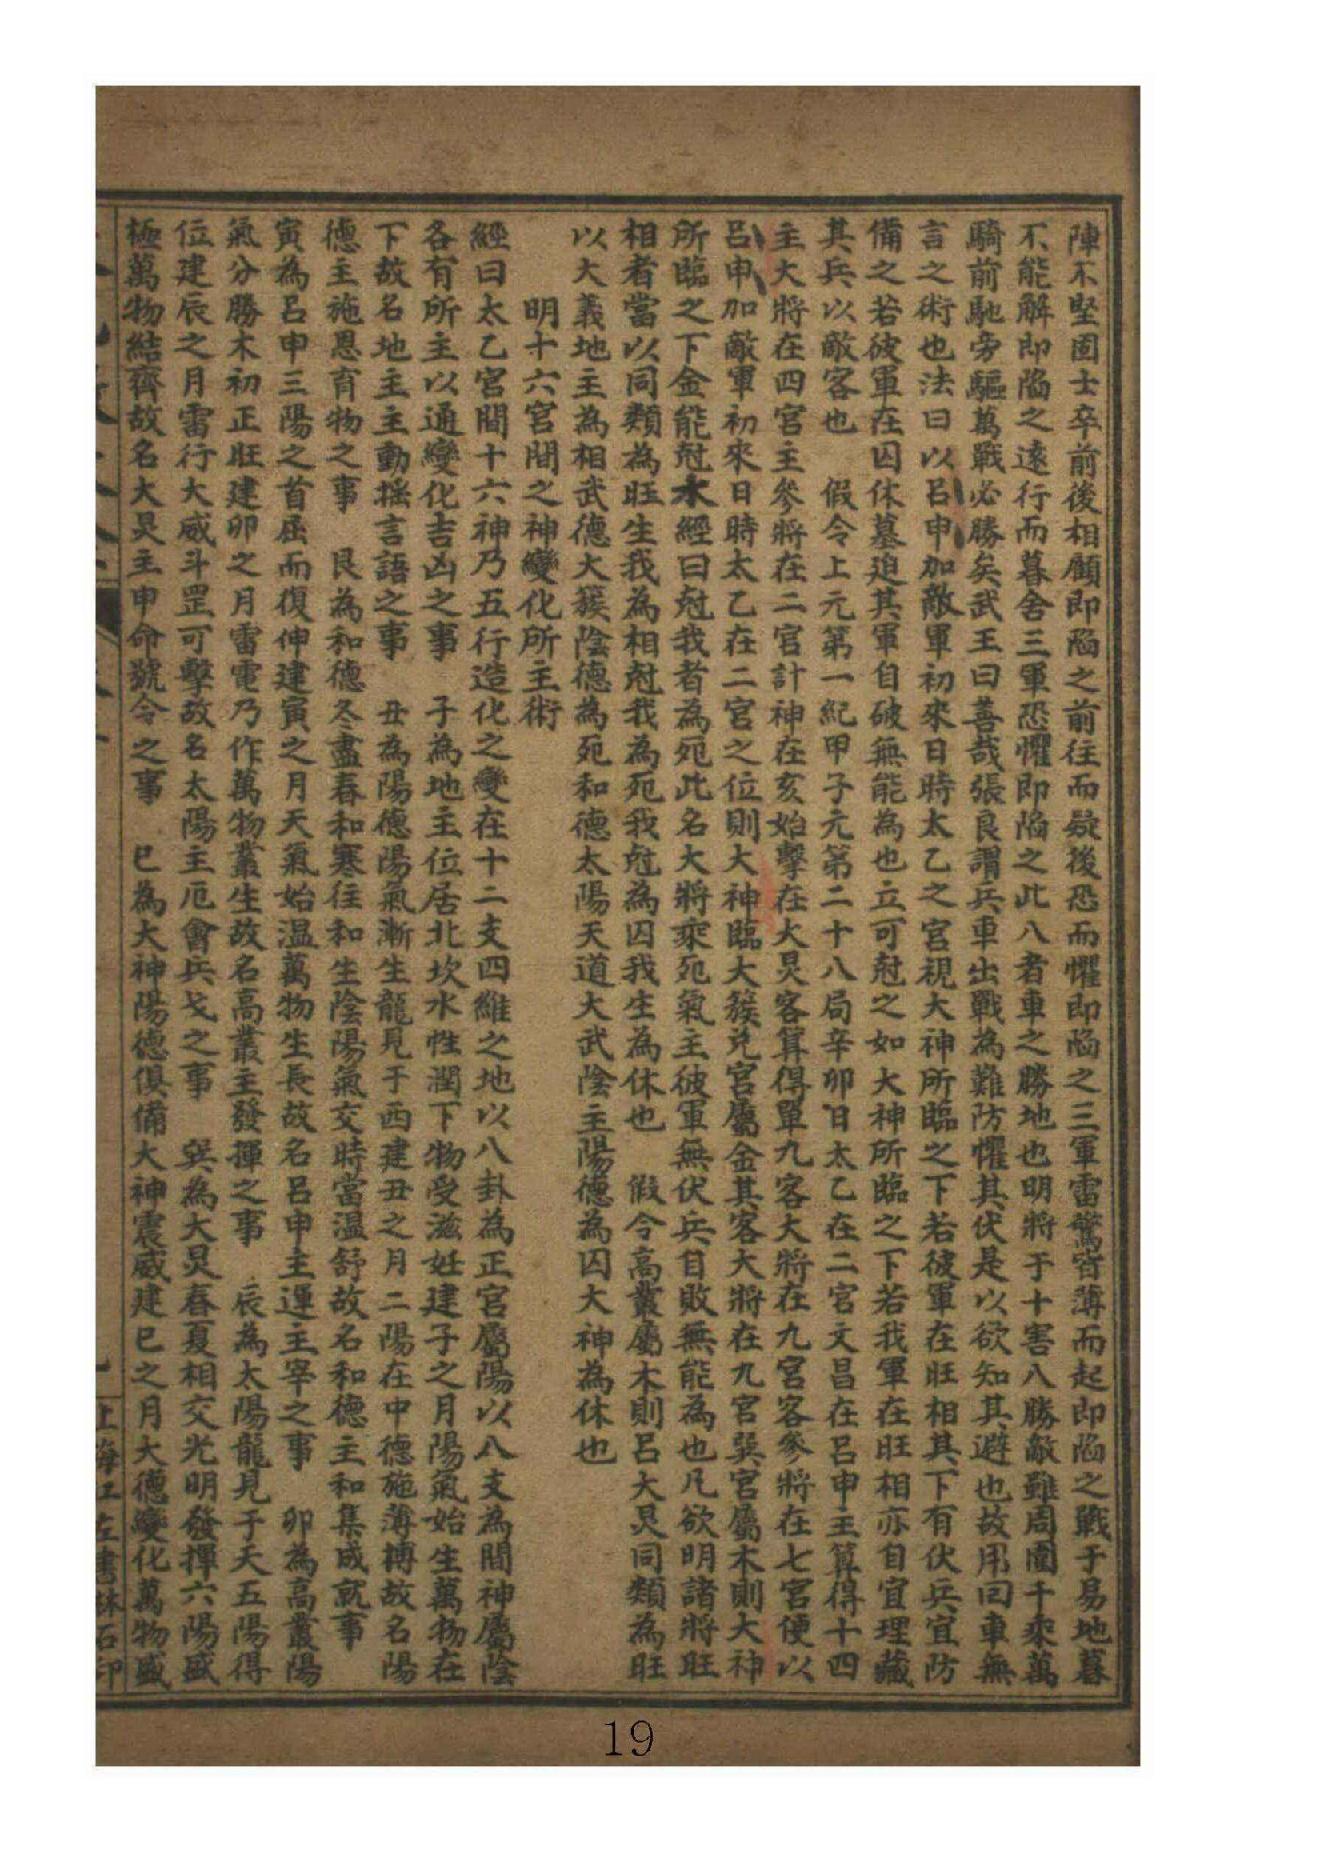 陣不堅固士卒前後相顧即陷之前往而疑後恐而懼即陷之三軍雷驚皆薄而起即陷之戰于易地暮
不能解即陷之遠行而暮舍三軍恐懼即陷之此八者車之勝地也明將于十害八勝敵雖周圍千乘萬
騎前馳旁驅萬戰必勝矣武王曰善哉張良謂兵車出戰為難防懼其伏是以欲知其避也故用回車無
言之術也法曰以呂申加敵軍初來日時太乙之宮視大神所臨之下若彼軍在旺相其下有伏兵宜防
備之若彼軍在囚休墓迫其軍自破無能為也立可尅之如大神所臨之下若我軍在旺相亦自宜理藏
其兵以敵客也　假令上元第一紀甲子元第二十八局辛卯日太乙在二宮文昌在呂申主算得十四
主大將在四宮主參將在二宮計神在亥始擊在大炅客算得單九客大將在九宮客參將在七宮便以
呂申加敵軍初來日時太乙在二宮之位則大神臨大簇兌宮屬金其客大將在九宮巽宮屬木則大神
所臨之下金能尅木經曰尅我者為死此名大將乘死氣主彼軍無伏兵自敗無能為也凡欲明諸將旺
相者當以同類為旺生我為相尅我為死我尅為囚我生為休也　假令高叢屬木則呂大炅同類為旺
以大義地主為相武德大簇陰德為死和德太陽天道大武陰主陽德為囚大神為休也
明十六宮間之神變化所主術
經曰太乙宮間十六神乃五行造化之變在十二支四維之地以八卦為正宮屬陽以八支為間神屬陰
各有所主以通變化吉凶之事　子為地主位居北坎水性潤下物受滋妊建子之月陽氣始生萬物在
下故名地主主動搖言語之事　丑為陽德陽氣漸生龍見于西建丑之月二陽在中德施薄摶故名陽
德主施恩育物之事　艮為和德冬盡春和寒往和生陰陽氣交時當溫舒故名和德主和集成就事
寅為呂申三陽之首屈而復伸建寅之月天氣始溫萬物生長故名呂申主運主宰之事　卯為高叢陽
氣分勝木初正旺建卯之月雷電乃作萬物叢生故名高叢主發揮之事　辰為太陽龍見于天五陽得
位建辰之月雷行大威斗罡可擊故名太陽主厄會兵戈之事　巽為大炅春夏相交光明發揮六陽盛
極萬物結齊故名大炅主申命號令之事　巳為大神陽德俱備大神震威建巳之月大德變化萬物盛
上海江左書林石印
19